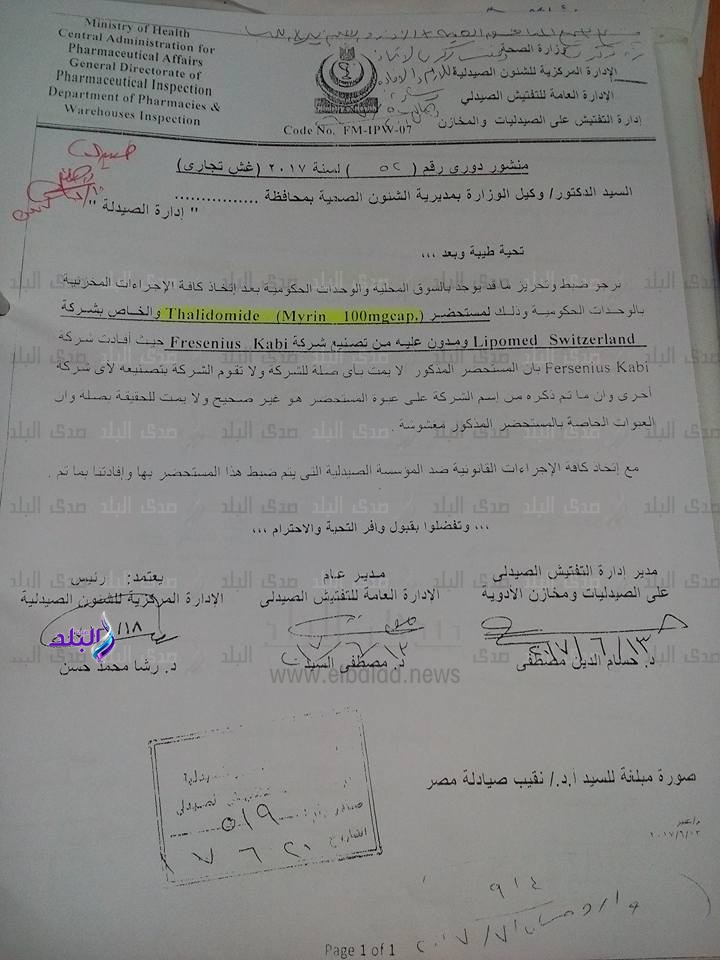 Ministry of Health
Central Administration for
Pharmaceutical Affairs
General Directorate of
Pharmaceutical Inspection
Department of Pharmacies &
Warehouses Inspection
وزارة الصحة
الإدارة المركزية للشئون الصيدلية
الإدارة العامة للتفتيش الصيدلي
إدارة التفتيش على الصيدليات والمخازن
Code No. FM-IPW-07
منشور دورى رقم ( ٥٢ ) لسنة ٢٠١٧ (غش تجارى)
السيد الدكتور/ وكيل الوزارة بمديرية الشئون الصحية بمحافظة ................
" إدارة الصيدلة "
تحية طيبة وبعد ،،،
نرجو ضبط وتحريز ما قد يوجد بالسوق المحلية والوحدات الحكومية بعد إتخاذ كافة الإجراءات المخزنية
بالوحدات الحكومية وذلك لمستحضر Thalidomide (Myrin 100mgcap.) والخاص بشركة
Lipomed Switzerland ومدون عليه من تصنيع شركة Fresenius Kabi حيث أفادت شركة
Fersenius Kabi بان المستحضر المذكور لا يمت بأى صلة للشركة ولا تقوم الشركة بتصنيعه لاى شركة
أخرى وان ما تم ذكره من إسم الشركة على عبوة المستحضر هو غير صحيح ولا يمت للحقيقة بصله وان
العبوات الخاصة بالمستحضر المذكور مغشوشة .
مع إتخاذ كافة الإجراءات القانونية ضد المؤسسة الصيدلية التى يتم ضبط هذا المستحضر بها وإفادتنا بما تم .
وتفضلوا بقبول وافر التحية والاحترام ،،،
مدير إدارة التفتيش الصيدلى
على الصيدليات ومخازن الأدوية
مدير عام
الإدارة العامة للتفتيش الصيدلى
يعتمد: رئيس
الإدارة المركزية للشئون الصيدلية
٢٠١٧/٦/١٣
د. حسام الدين مصطفى
د. مصطفى السيد
د. رشا محمد حسن
البلد
صدى البلد
www.elbalad.news
صورة مبلغة للسيد ا.د./ نقيب صيادلة مصر
٥١٩
٢٠١٧/٦/١٣
٩١٤
Page 1 of 1